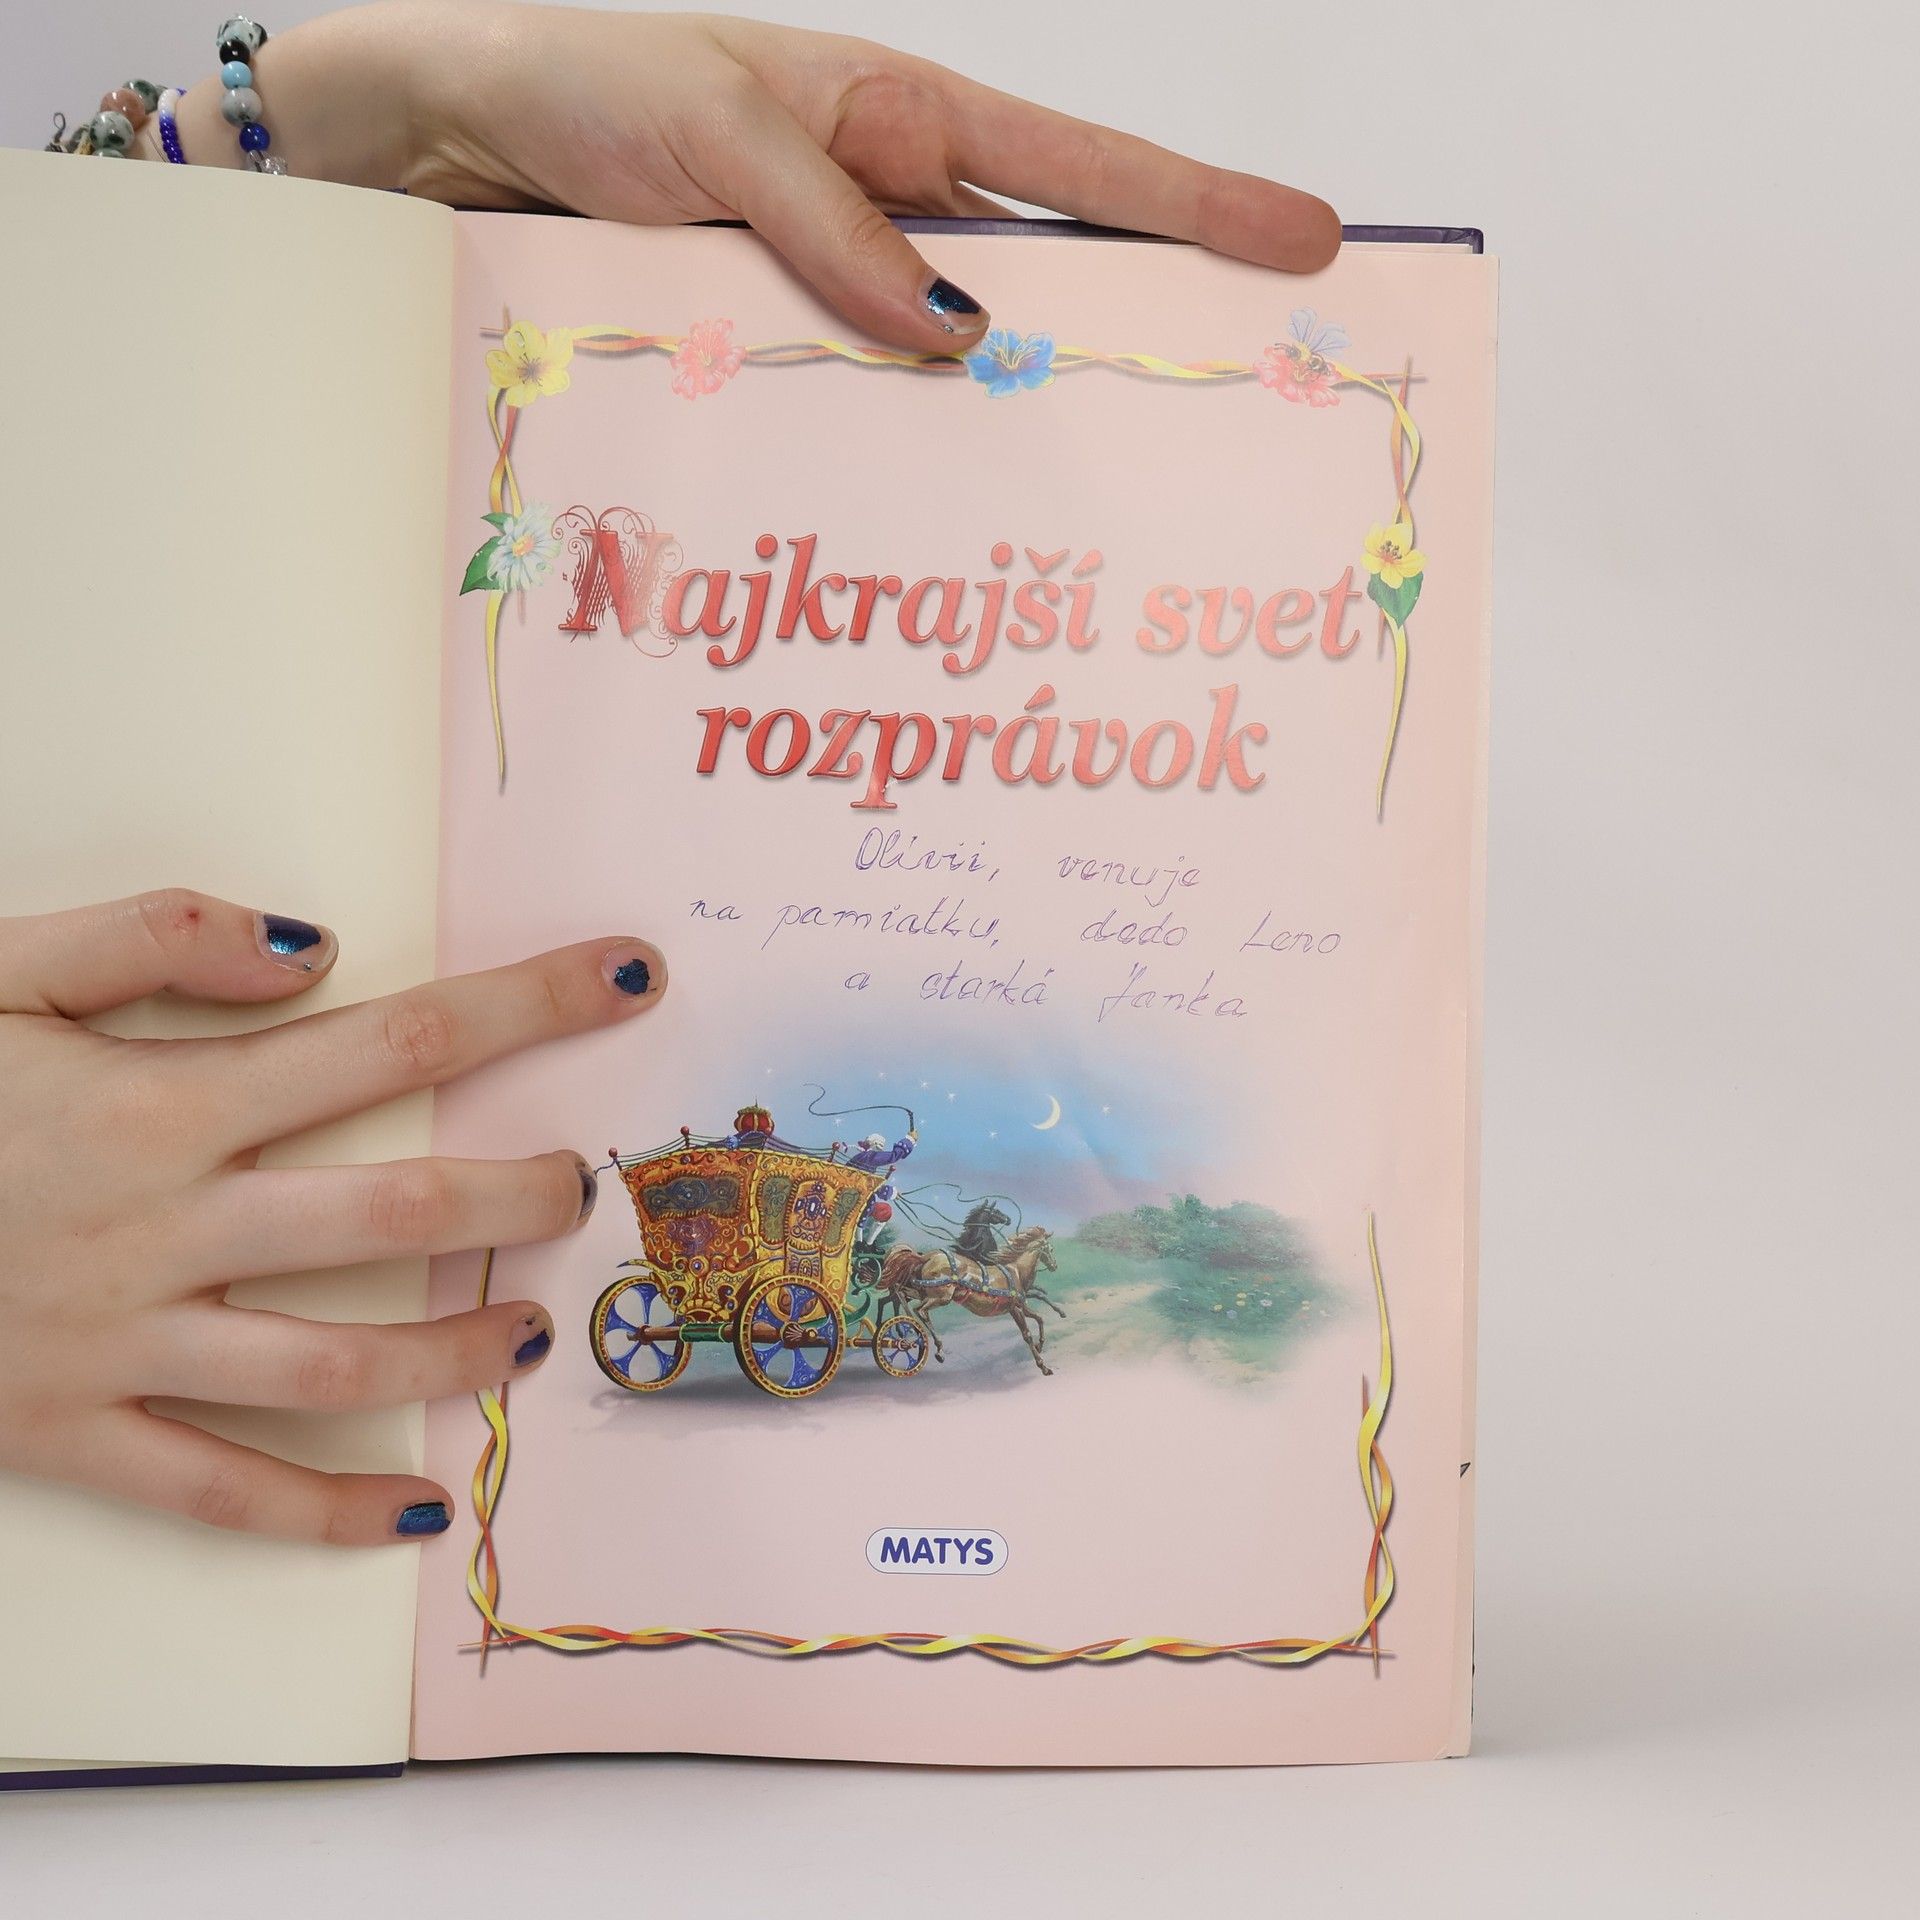 Najkrajší svet
rozprávok
Olívii, venuje
na pamiatku, dedo Leno
a starká Janka
MATYS